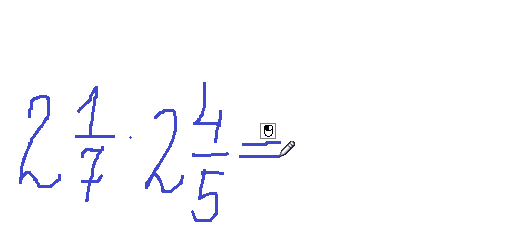 2 1/7 · 2 4/5 =